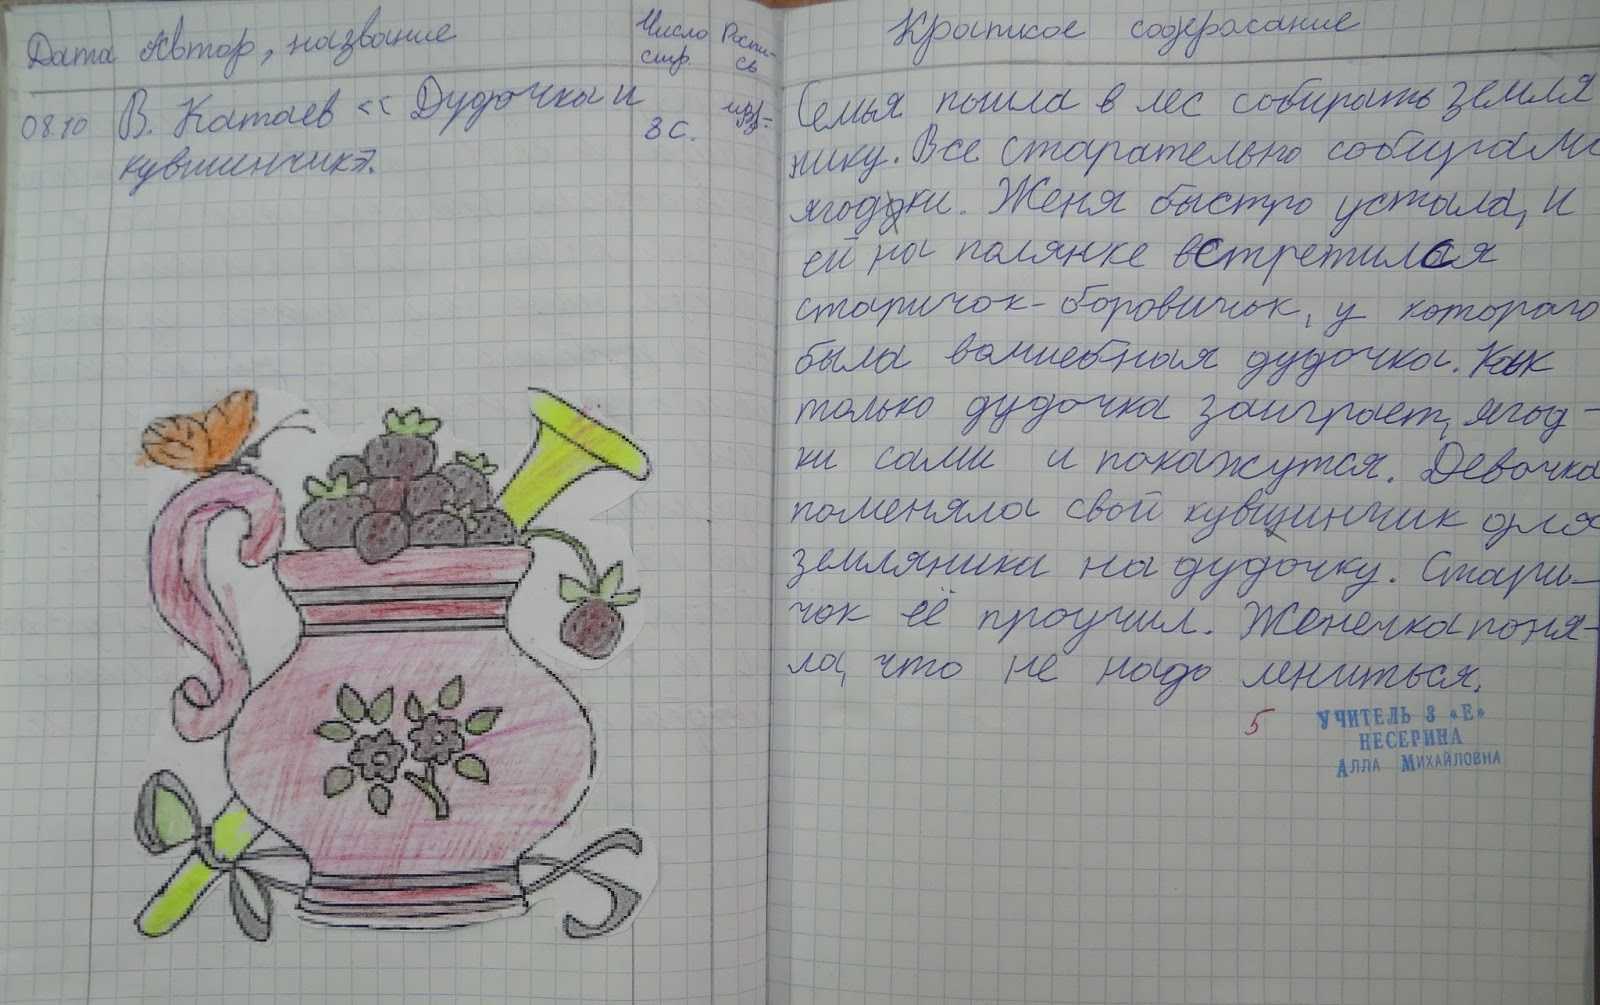 Дата Автор, название
Число
стр.
Роспи-
сь
08.10 В. Катаев « Дудочка и
кувшинчик».
3 с.
Краткое содержание
Семья пошла в лес собирать земля
нику. Все старательно собирали
ягодки. Женя быстро устала, и
ей на полянке встретился
старичок-боровичок, у которого
была волшебная дудочка. Как
только дудочка заиграет, ягод-
ки сами и покажутся. Девочка
поменяла свой кувшинчик для
земляники на дудочку. Стари-
чок её проучил. Женечка поня-
ла, что не надо лениться.
5
УЧИТЕЛЬ 3 «Е»
НЕСЕРИНА
АЛЛА МИХАЙЛОВНА